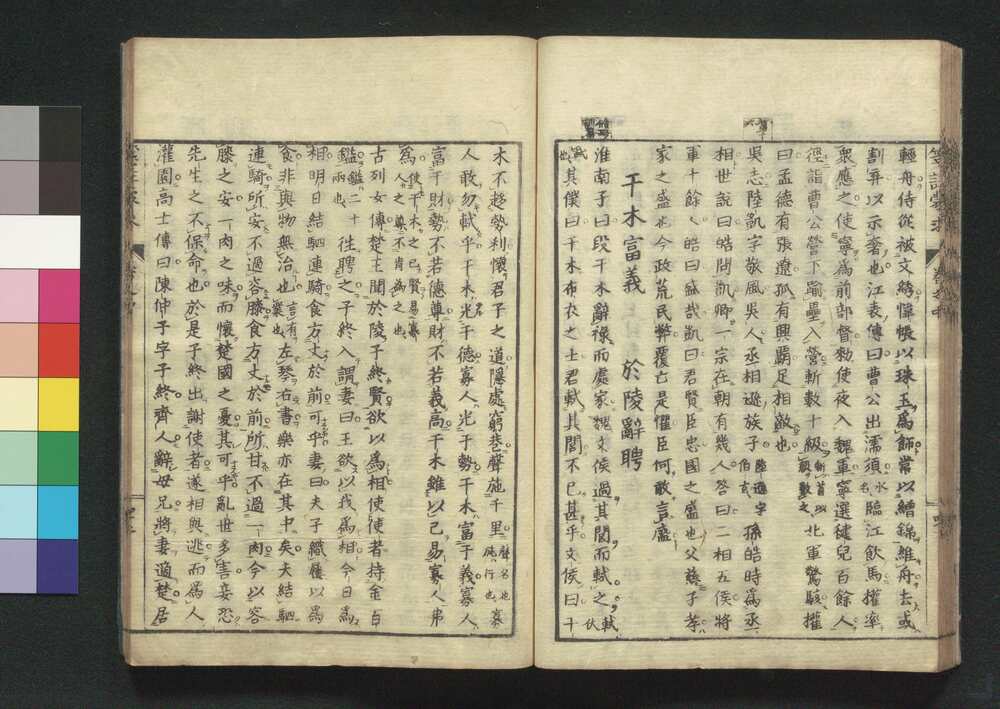 輕舟侍從被文綉幃帳以珠玉爲飾常以繒錦維舟去或
割弃以示奢也江表傳曰曹公出濡須水名臨江飮馬權率
衆應之使寧爲前部督勅使夜入魏軍寧選健兒百餘人
徑詣曹公營下踰壘入營斬數十級斬首以級數之北軍驚駭權
曰孟德有張遼孤有興覇足相敵也
吳志陸凱字敬風吳人丞相遜族子陸遜字伯言孫皓時爲丞
相世說曰皓問凱卿一宗在朝有幾人答曰二相五侯將
軍十餘皓曰盛哉凱曰君賢臣忠國之盛也父慈子孝
家之盛也今政荒民弊覆亡是懼臣何敢言盛
干木富義 於陵辭聘
淮南子曰段干木辭祿而處家魏文侯過其閭而軾之軾伏
也其僕曰干木布衣之士君軾其閭不已甚乎文侯曰干
木不趍勢利懷君子之道隱處窮巷聲施千里聲名也施行也寡
人敢勿軾乎干木光于德寡人光于勢干木富于義寡人
富于財勢不若德尊財不若義高干木雖以己易寡人弗
爲使干木之己賢易寡人之尊不肯爲之也
古列女傳楚王聞於陵子終賢欲以爲相使使者持金百
鎰鎰二十兩也徃聘之子終入謂妻曰王欲以我爲相今日爲
相明日結駟連騎食方丈於前可乎妻曰夫子織屨以爲
食非與物無治也言有業也左琴右書樂亦在其中矣夫結駟
連騎所安不過容膝食方丈於前所甘不過一肉今以容
膝之安一肉之味而懷楚國之憂其可乎亂世多害妾恐
先生之不保命也於是子終出謝使者遂相與逃而爲人
灌園高士傳曰陳仲子字子終齊人辭母兄將妻適楚居